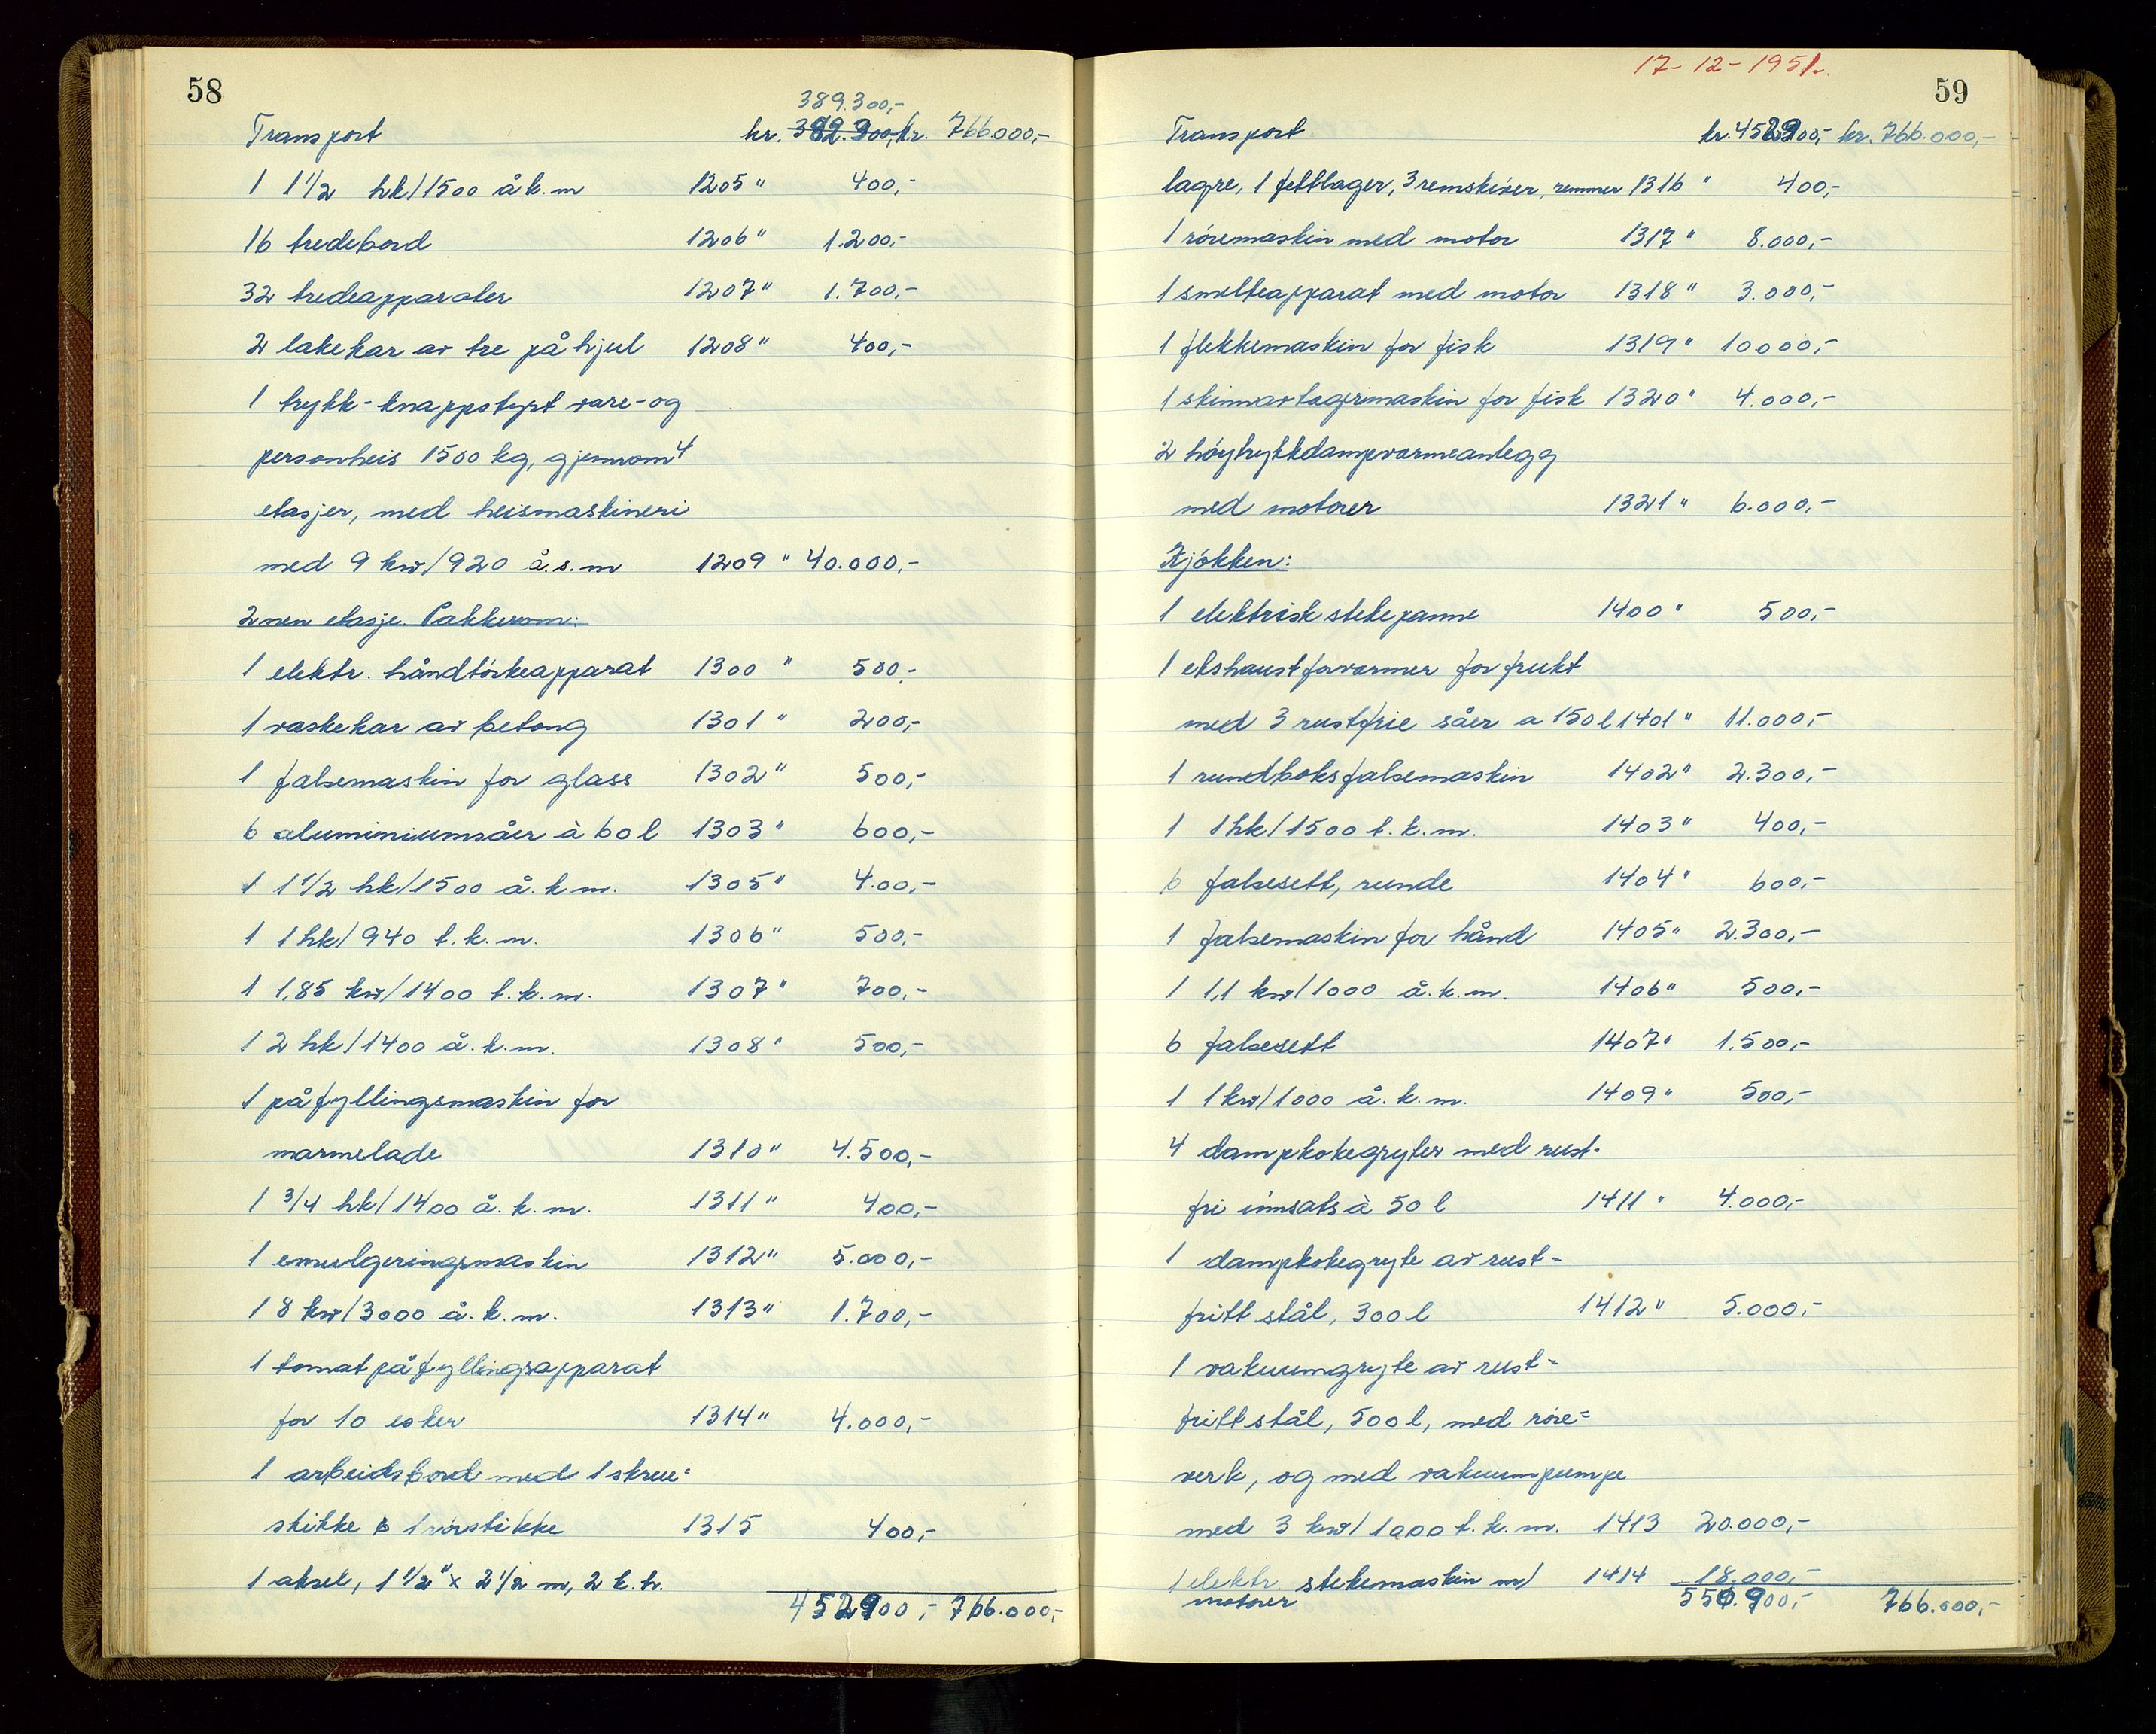 58
389.300,-
Transport kr. 382.900,- kr. 766.000,-
1 1 1/2 hk/1500 å k.m 1205 " 400,-
16 tredebord 1206 " 1.200,-
32 tredeapparater 1207 " 1.700,-
2 lakekar av tre på hjul 1208 " 400,-
1 trykk-knappstyrt vare- og
personheis 1500 kg, gjennom 4
etasjer, med heismaskineri
med 9 kw/920 å.s.m 1209 " 40.000,-
2nen etasje. Pakkerom:
1 elektr. håndtörkeapparat 1300 " 500,-
1 vaskekar av betong 1301 " 200,-
1 falsemaskin for glass 1302 " 500,-
6 aluminiumsåer à 60 l 1303 " 600,-
1 1 1/2 hk/1500 å.k.m. 1305 " 400,-
1 1 hk/940 l.k.m. 1306 " 500,-
1 1,85 kw/1400 l.k.m. 1307 " 700,-
1 2 hk/1400 å.k.m. 1308 " 500,-
1 påfyllingsmaskin for
marmelade 1310 " 4.500,-
1 3/4 hk/1400 å.k.m. 1311 " 400,-
1 emulgeringsmaskin 1312 " 5.000,-
1 8 kw/3000 å.k.m. 1313 " 1.700,-
1 tomatpåfyllingsapparat
for 10 esker 1314 " 4.000,-
1 arbeidsbord med 1 skrue=
stikke & 1 rörstikke 1315 400,-
1 aksel, 1 1/2" x 2 1/2 m, 2 k.l.
452900,- 766.000,-
17-12-1951.
59
Transport kr. 452900,- kr. 766.000,-
lagre, 1 fettlager, 3 remskiver, remmer 1316 " 400,-
1 röremaskin med motor 1317 " 8.000,-
1 smelteapparat med motor 1318 " 3.000,-
1 flekkemaskin for fisk 1319 " 10000,-
1 skinnavtagermaskin for fisk 1320 " 4.000,-
2 höytrykkdampvarmeanlegg
med motorer 1321 " 6.000,-
Kjökken:
1 elektrisk stekepanne 1400 " 500,-
1 ekshaustforvarmer for frukt
med 3 rustfrie såer a 150 l 1401 " 11.000,-
1 rundboksfalsemaskin 1402 " 2.300,-
1 1 hk/1500 l.k.m. 1403 " 400,-
6 falsesett, runde 1404 " 600,-
1 falsemaskin for hånd 1405 " 2.300,-
1 1,1 kw/1000 å.k.m. 1406 " 500,-
6 falsesett 1407 " 1.500,-
1 1 kw/1000 å.k.m. 1409 " 500,-
4 dampkokegryter med rust-
fri innsats à 50 l 1411 " 4.000,-
1 dampkokegryte av rust-
fritt stål, 300 l 1412 " 5.000,-
1 vakuumgryte av rust=
fritt stål, 500 l, med röre=
verk, og med vakuumpumpe
med 3 kw/1000 l.k.m. 1413 20.000,-
1 elektr. stekemaskin m/ 1414 18.000,-
motorer 550.900,- 766.000,-